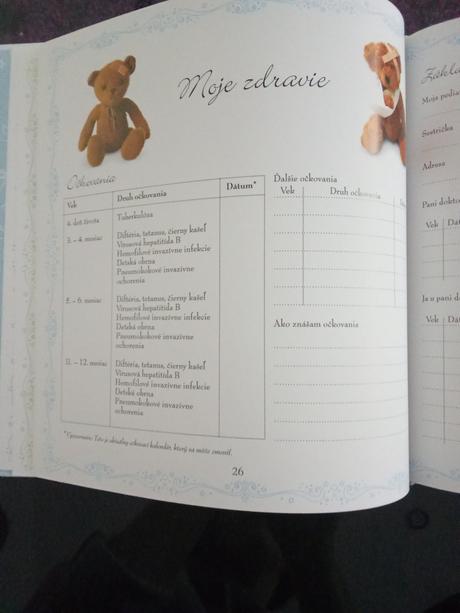 Moje zdravie
Očkovania
Vek Druh očkovania Dátum*
4. deň života Tuberkulóza
3. – 4. mesiac Diftéria, tetanus, čierny kašeľ
Vírusová hepatitída B
Hemofilové invazívne infekcie
Detská obrna
Pneumokokové invazívne
ochorenia
5. – 6. mesiac Diftéria, tetanus, čierny kašeľ
Vírusová hepatitída B
Hemofilové invazívne infekcie
Detská obrna
Pneumokokové invazívne
ochorenia
11. – 12. mesiac Diftéria, tetanus, čierny kašeľ
Vírusová hepatitída B
Hemofilové invazívne infekcie
Detská obrna
Pneumokokové invazívne
ochorenia
*Upozornenie: Toto je aktuálny očkovací kalendár, ktorý sa môže zmeniť.
Ďalšie očkovania
Vek Druh očkovania
Ako znášam očkovania
26
Moja pedia
Sestrička
Adresa
Pani dokto
Vek Dá
Ja u pani d
Vek Dát